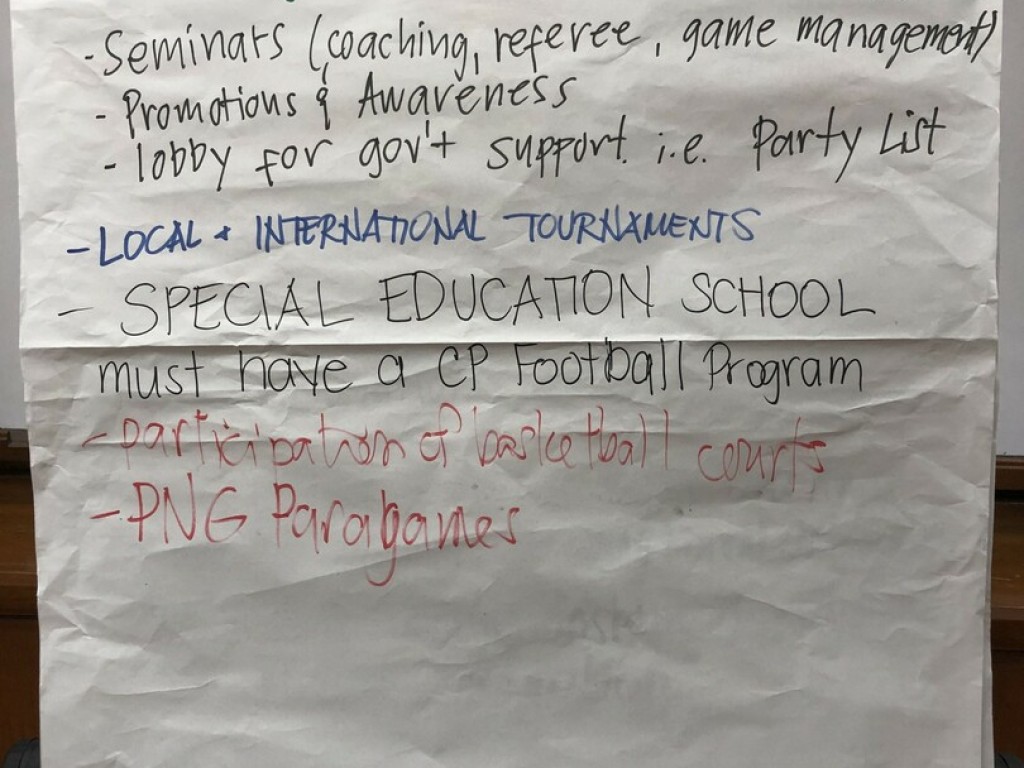 - Seminars (coaching, referee, game management)
- Promotions & Awareness
- lobby for gov't support. i.e. Party List
- LOCAL + INTERNATIONAL TOURNAMENTS
- SPECIAL EDUCATION SCHOOL
must have a CP Football Program
- participation of basketball courts
- PNG Paragames